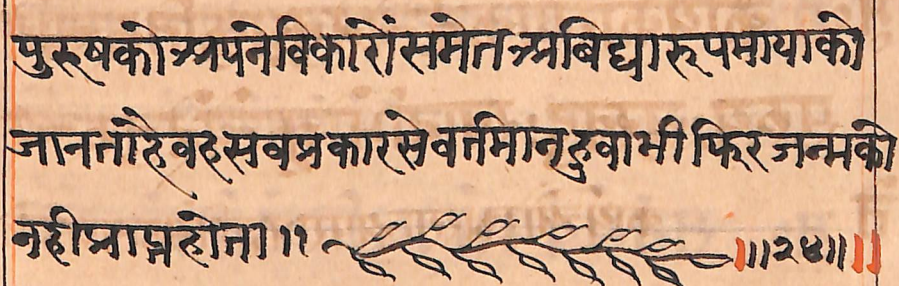 पुरुषकोअपनेविकारोंसमेतअबिद्यारूपमायाको
जानताहैवहसवप्रकारसेवर्तमानहुवाभीफिरजन्मको
नहीप्राप्तहोता॥ ॥॥२४॥॥